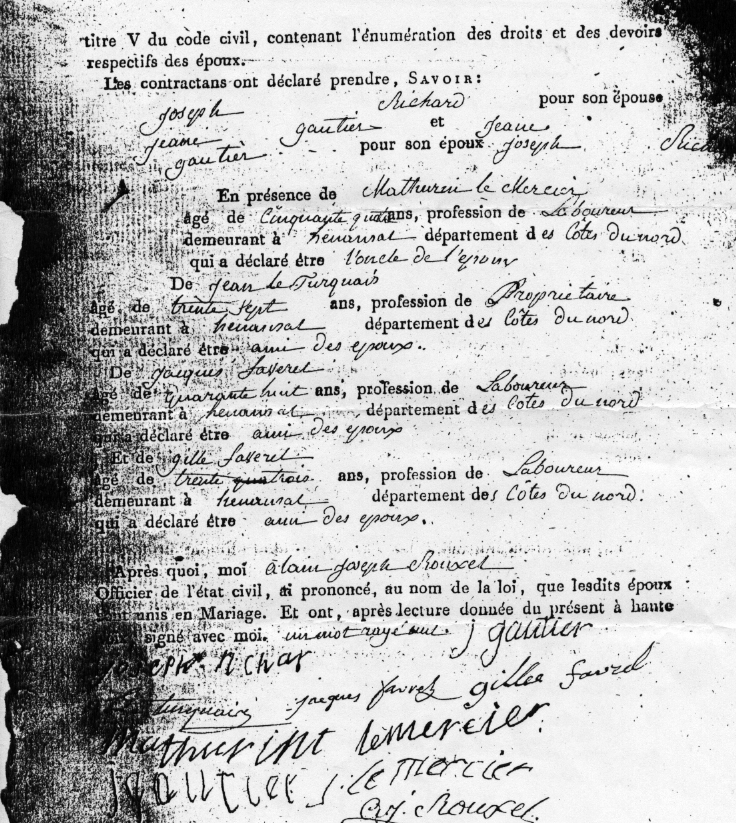 titre V du code civil, contenant l'énumération des droits et des devoirs
respectifs des époux.
Les contractans ont déclaré prendre, SAVOIR:
Joseph Richard pour son épouse
Jeane gautier et Jeane
gautier pour son époux Joseph Rich
En présence de Mathurin le Mercier
âgé de Cinquante ans, profession de Laboureur
demeurant à henansal département des Côtes du nord
qui a déclaré être l'oncle de l'epoux
De Jean le Turquais
âgé de trente sept ans, profession de Proprietaire
demeurant à henansal département des Côtes du nord
qui a déclaré être ami des epoux.
De Jacques Faverel
âgé de quarante huit ans, profession de Laboureur
demeurant à henansal département des Côtes du nord
qui a déclaré être ami des epoux
Et de gille Faverel
âgé de trente ans, profession de Laboureur
demeurant à henansal département des Côtes du nord.
qui a déclaré être ami des epoux.
Après quoi, moi alain Joseph Rouxel
Officier de l'état civil, ai prononcé, au nom de la loi, que lesdits époux
sont unis en Mariage. Et ont, après lecture donnée du présent à haute
voix, signé avec moi. un mot rayé nul. j gautier
joseph richar
le turquais jacques favrel gilles favrel
Mathurint lemercier.
j gautier j. le mercier
a.j. Rouxel.